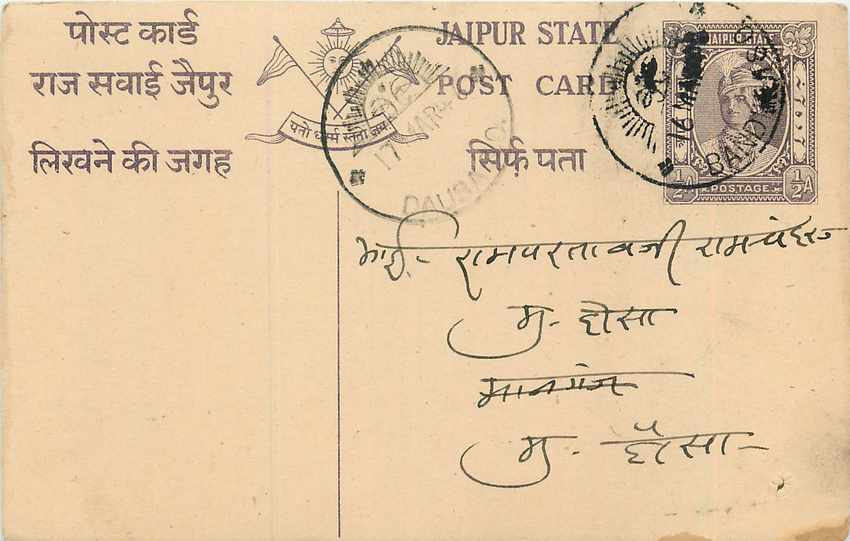 पोस्ट कार्ड
राज सवाई जैपुर
लिखने की जगह
यतो धर्म्म स्ततो जयः
JAIPUR STATE
POST CARD
सिर्फ़ पता
JAIPUR STATE
½A
POSTAGE
½A
17 MAR 4
DAUSA
16 MAR
BAND
भाई- रामपरतावजी
मु- दौसा
मानगंज
मु- दौसा-